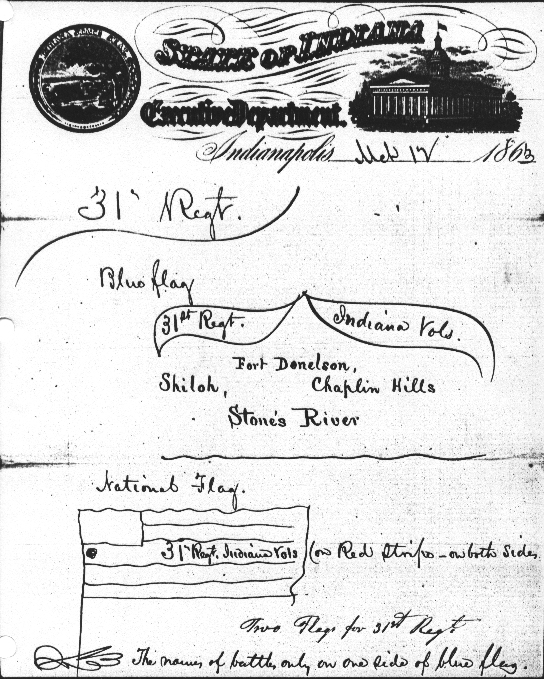 STATE OF INDIANA
Executive Department.
Indianapolis Mch 12 1863
31st Regt.
Blue flag
31st Regt. Indiana Vols.
Fort Donelson,
Shiloh, Chaplin Hills
Stone's River
National Flag.
31st Regt. Indiana Vols (on Red Stripe - on both sides.
Two Flags for 31st Regt
The names of battles only on one side of blue flag.